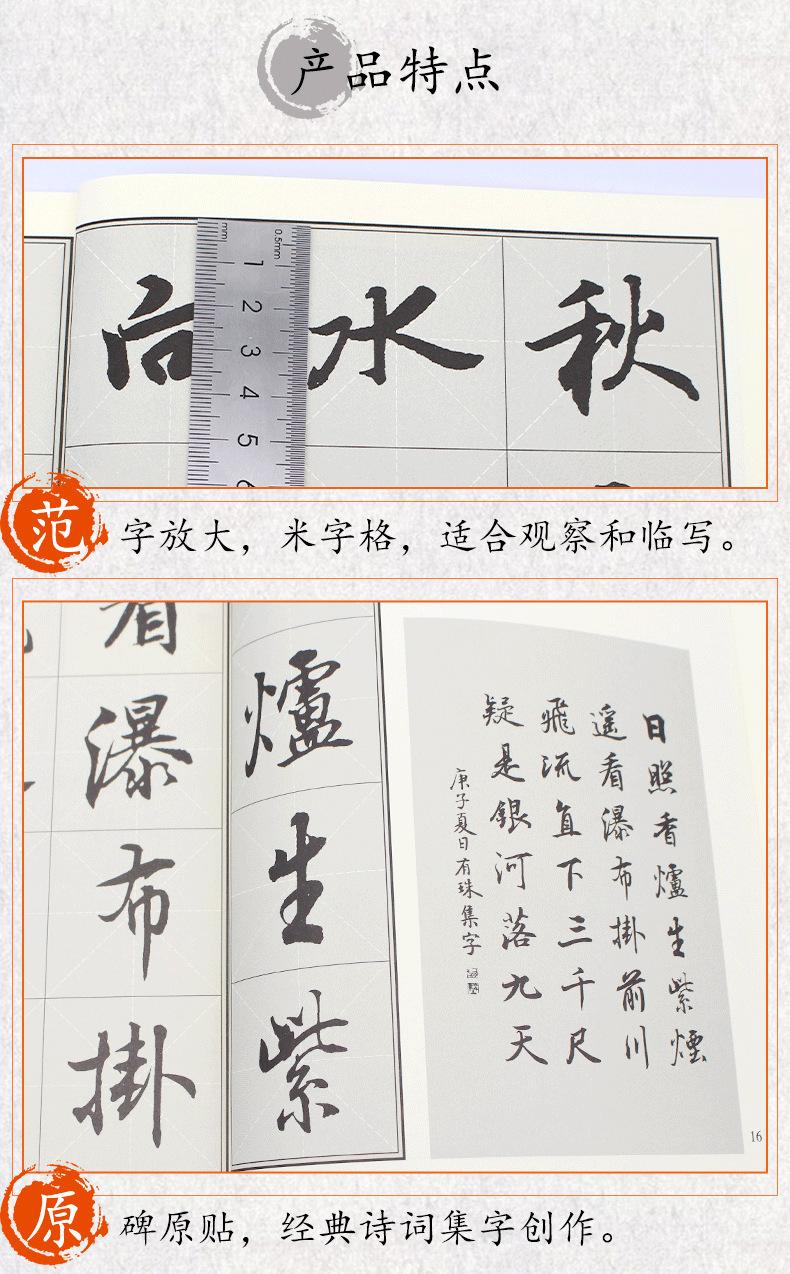 产品特点
mm
0.5mm
1
2
3
4
5
秋
水
范字放大，米字格，适合观察和临写。
爐生紫
看瀑布掛
日照香爐生紫煙
遥看瀑布掛前川
飛流直下三千尺
疑是銀河落九天
庚子夏日有珠集字
16
原碑原贴，经典诗词集字创作。